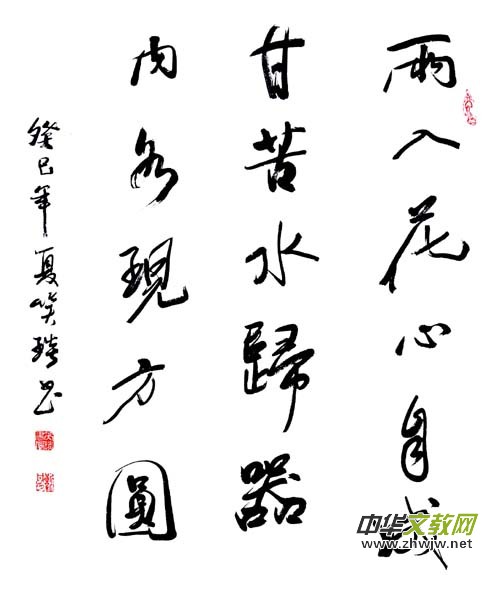 雨入花心自成
甘苦水歸器
内各現方圓
癸巳年夏笑书
中华文教网
www.zhwjw.net